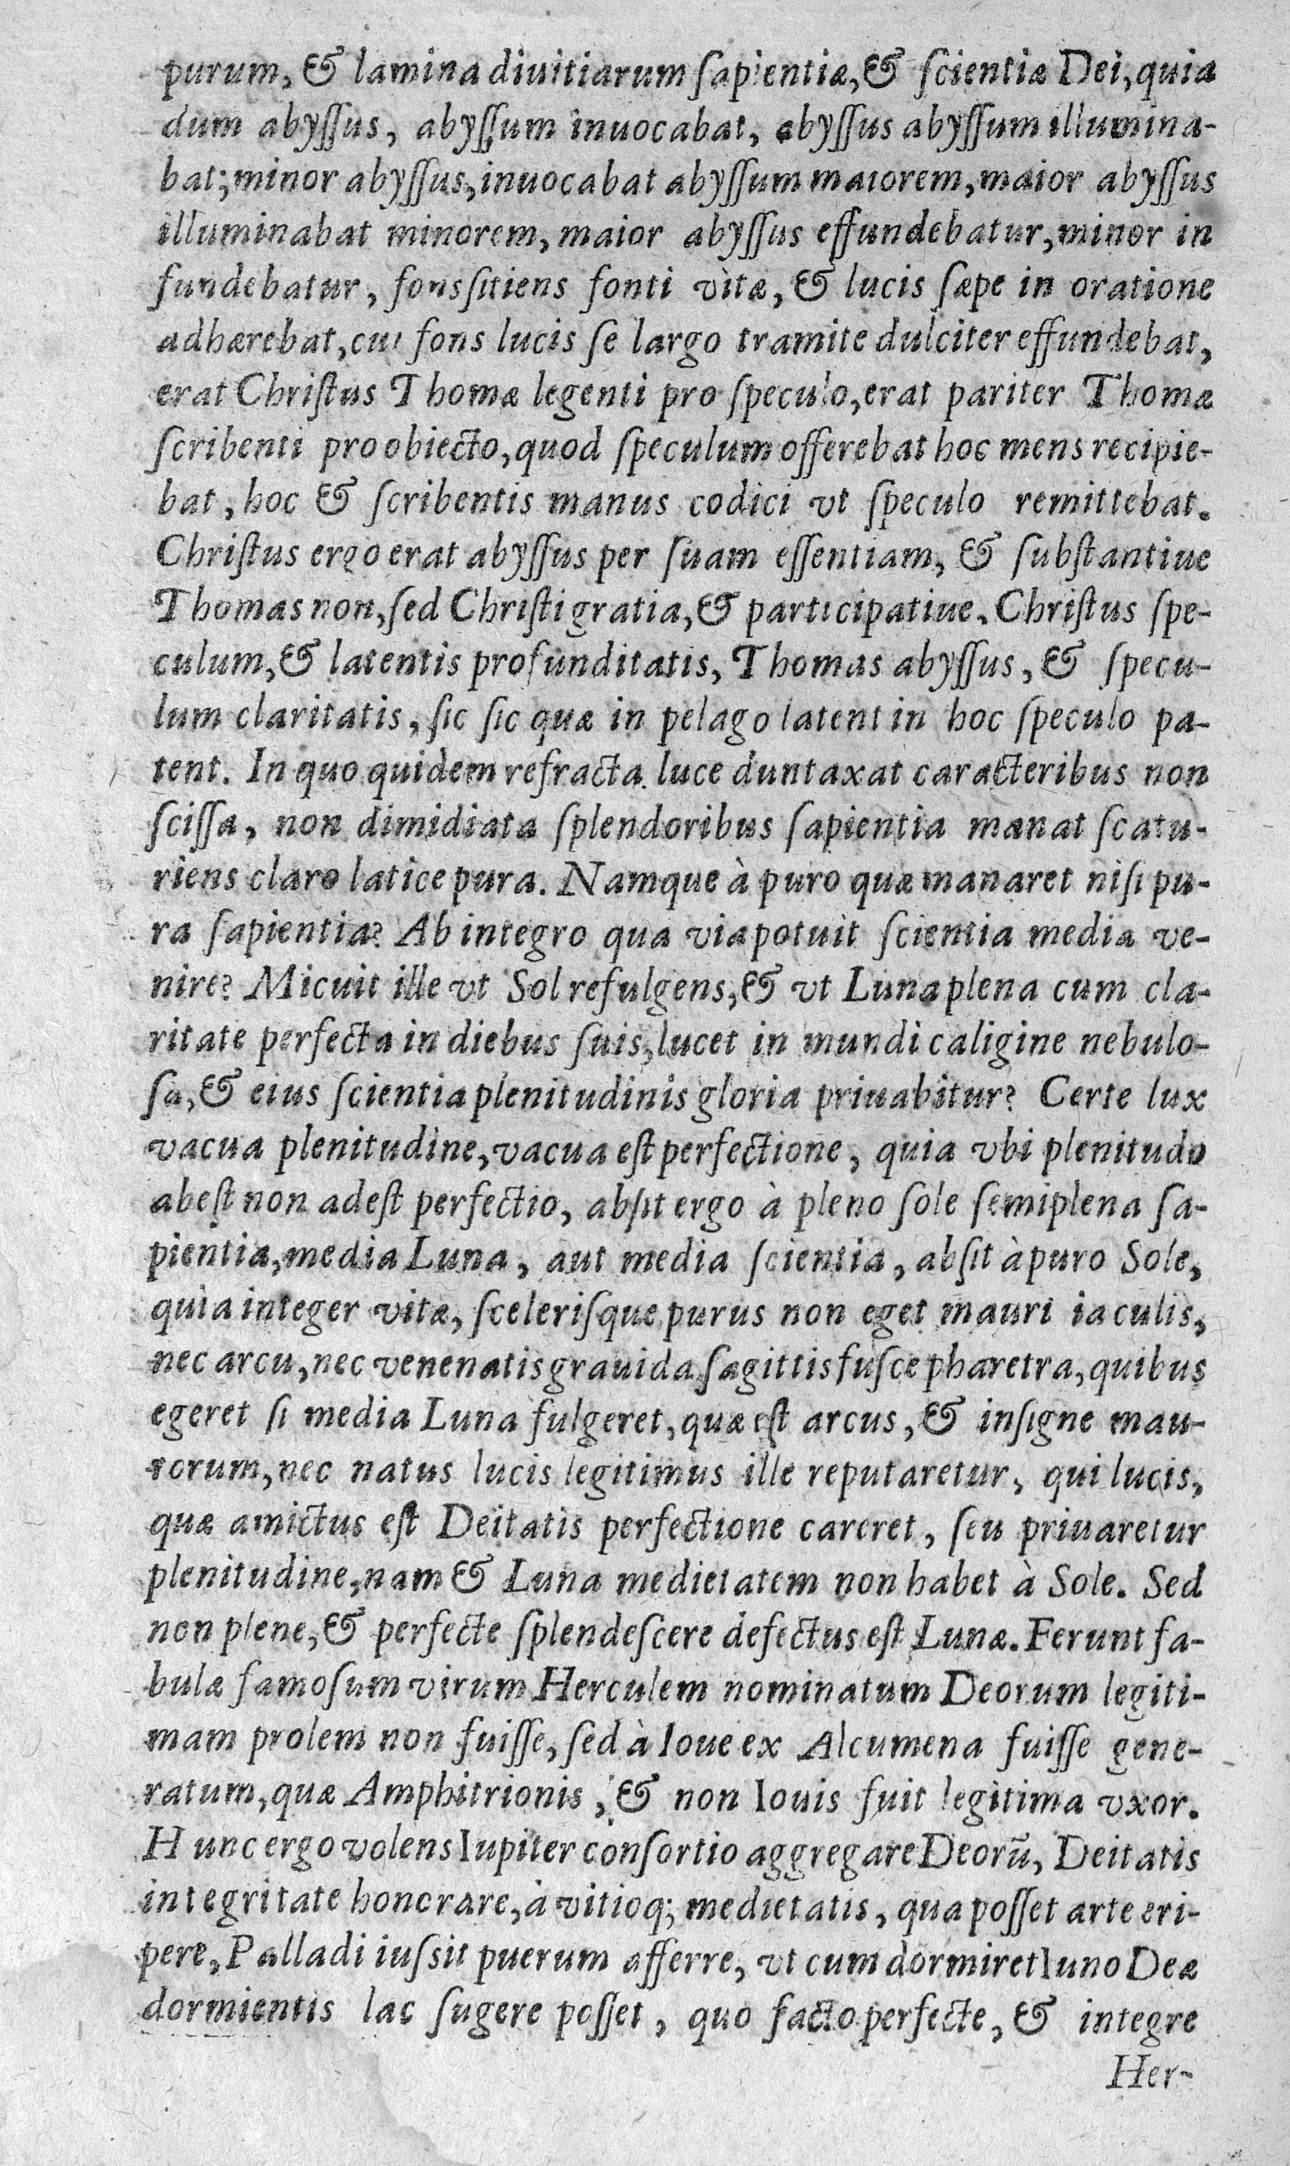 purum, & lamina diuitiarum ſapientiæ, & ſcientiæ Dei, quia
dum abyſſus, abyſſum inuocabat, abyſſus abyſſum illumina-
bat; minor abyſſus, inuocabat abyſſum maiorem, maior abyſſus
illuminabat minorem, maior abyſſus effundebatur, minor in
fundebatur, fons ſitiens fonti vitæ, & lucis ſæpe in oratione
adhærebat, cui fons lucis ſe largo tramite dulciter effundebat,
erat Chriſtus Thomæ legenti pro ſpeculo, erat pariter Thomæ
ſcribenti pro obiecto, quod ſpeculum offerebat hoc mens recipie-
bat, hoc & ſcribentis manus codici vt ſpeculo remittebat.
Chriſtus ergo erat abyſſus per ſuam eſſentiam, & ſubſtantiue
Thomas non, ſed Chriſti gratia, & participatiue. Chriſtus ſpe-
culum, & latentis profunditatis, Thomas abyſſus, & ſpecu-
lum claritatis, ſic ſic quæ in pelago latent in hoc ſpeculo pa-
tent. In quo quidem refracta luce duntaxat caracteribus non
ſciſſa, non dimidiata ſplendoribus ſapientia manat ſcatu-
riens claro latice pura. Namque à puro quæ manaret niſi pu-
ra ſapientia? Ab integro qua via potuit ſcientia media ve-
nire? Micuit ille vt Sol refulgens, & vt Luna plena cum cla-
ritate perfecta in diebus ſuis, lucet in mundi caligine nebulo-
ſa, & eius ſcientia plenitudinis gloria priuabitur? Certe lux
vacua plenitudine, vacua eſt perfectione, quia vbi plenitudo
abeſt non adeſt perfectio, abſit ergo à pleno ſole ſemiplena ſa-
pientia, media Luna, aut media ſcientia, abſit à puro Sole,
quia integer vitæ, ſceleriſque purus non eget mauri iaculis,
nec arcu, nec venenatis grauida ſagittis fuſce pharetra, quibus
egeret ſi media Luna fulgeret, quæ eſt arcus, & inſigne mau-
rorum, nec natus lucis legitimus ille reputaretur, qui lucis,
quæ amictus eſt Deitatis perfectione careret, ſeu priuaretur
plenitudine, nam & Luna medietatem non habet à Sole. Sed
non plene, & perfecte ſplendeſcere defectus eſt Lunæ. Ferunt fa-
bulæ famoſum virum Herculem nominatum Deorum legiti-
mam prolem non fuiſſe, ſed à Ioue ex Alcumena fuiſſe gene-
ratum, quæ Amphitrionis, & non Iouis fuit legitima vxor.
Hunc ergo volens Iupiter conſortio aggregare Deorũ, Deitatis
integritate honorare, à vitioq; medietatis, qua poſſet arte eri-
pere, Palladi iuſsit puerum afferre, vt cum dormiret Iuno Deæ
dormientis lac ſugere poſſet, quo facto perfecte, & integre
Her-